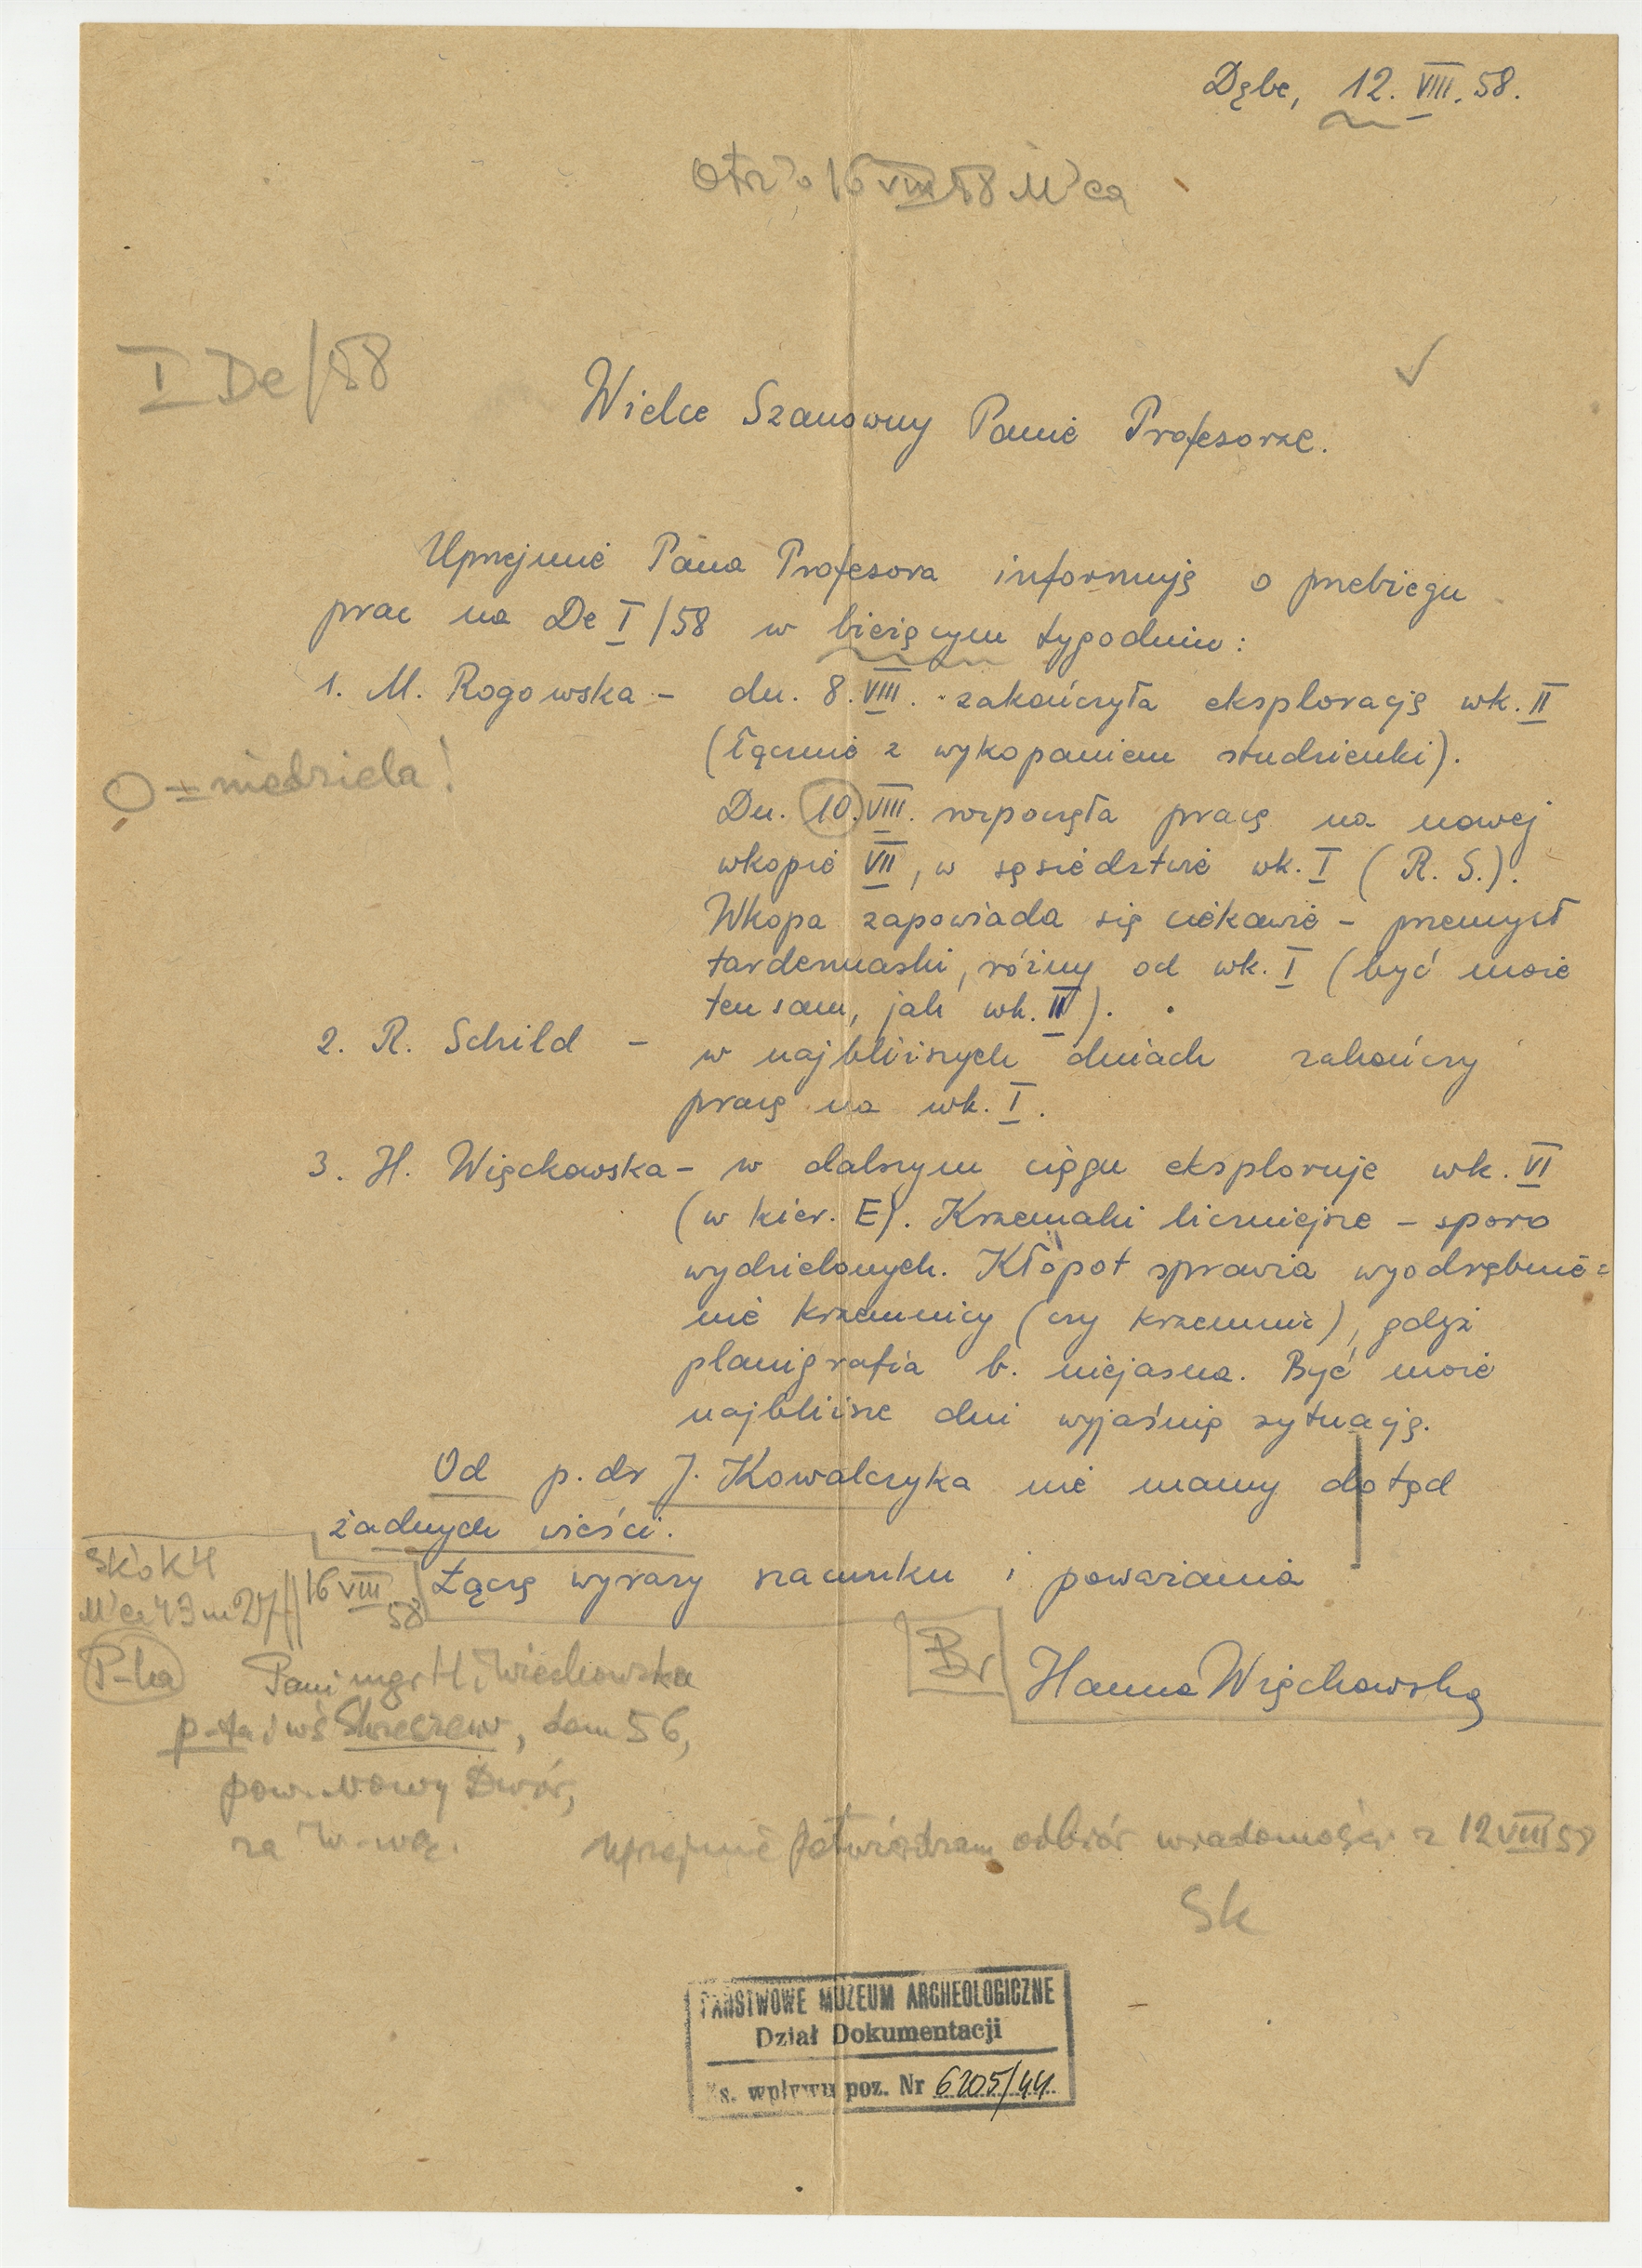 Dębe, 12. VIII. 58.
Otrz 16 VIII 58 W ca
I De/58
Wielce Szanowny Panie Profesorze.
Uprzejmie Pana Profesora informuję o przebiegu
prac na De I/58 w bieżącym tygodniu:
1. M. Rogowska – dn. 8. VIII. zakończyła eksplorację wk. II
(łącznie z wykopaniem studzienki).
= niedziela!
Dn. 10. VIII. rozpoczęła pracę na nowej
wkopie VII, w sąsiedztwie wk. I (R. S.).
Wkopa zapowiada się ciekawie – przemysł
tardenuaski, różny od wk. I (być może
ten sam, jak wk. II).
2. R. Schild –
w najbliższych dniach zakończy
pracę na wk. I.
3. H. Więckowska – w dalszym ciągu eksploruje wk. VI
(w kier. E). Krzemaki liczniejsze – sporo
wydzielonych. Kłopot sprawia wyodrębnie=
nie krzemnicy (czy krzemnic), gdyż
planigrafia b. niejasna. Być może
najbliższe dni wyjaśnią sytuację.
Od p. dr J. Kowalczyka nie mamy dotąd
żadnych wieści.
Łączę wyrazy szacunku i poważania
16 VIII 58
P-ka
Br
Hanna Więckowska
Pani mgr H. Więckowska
p-ta i wś Skrzeszew, dom 56,
pow. Nowy Dwór,
za W-wą.
Uprzejmie potwierdzam odbiór wiadomości z 12 VIII 58
Sk
PAŃSTWOWE MUZEUM ARCHEOLOGICZNE
Dział Dokumentacji
Ks. wpływu poz. Nr 6205/44